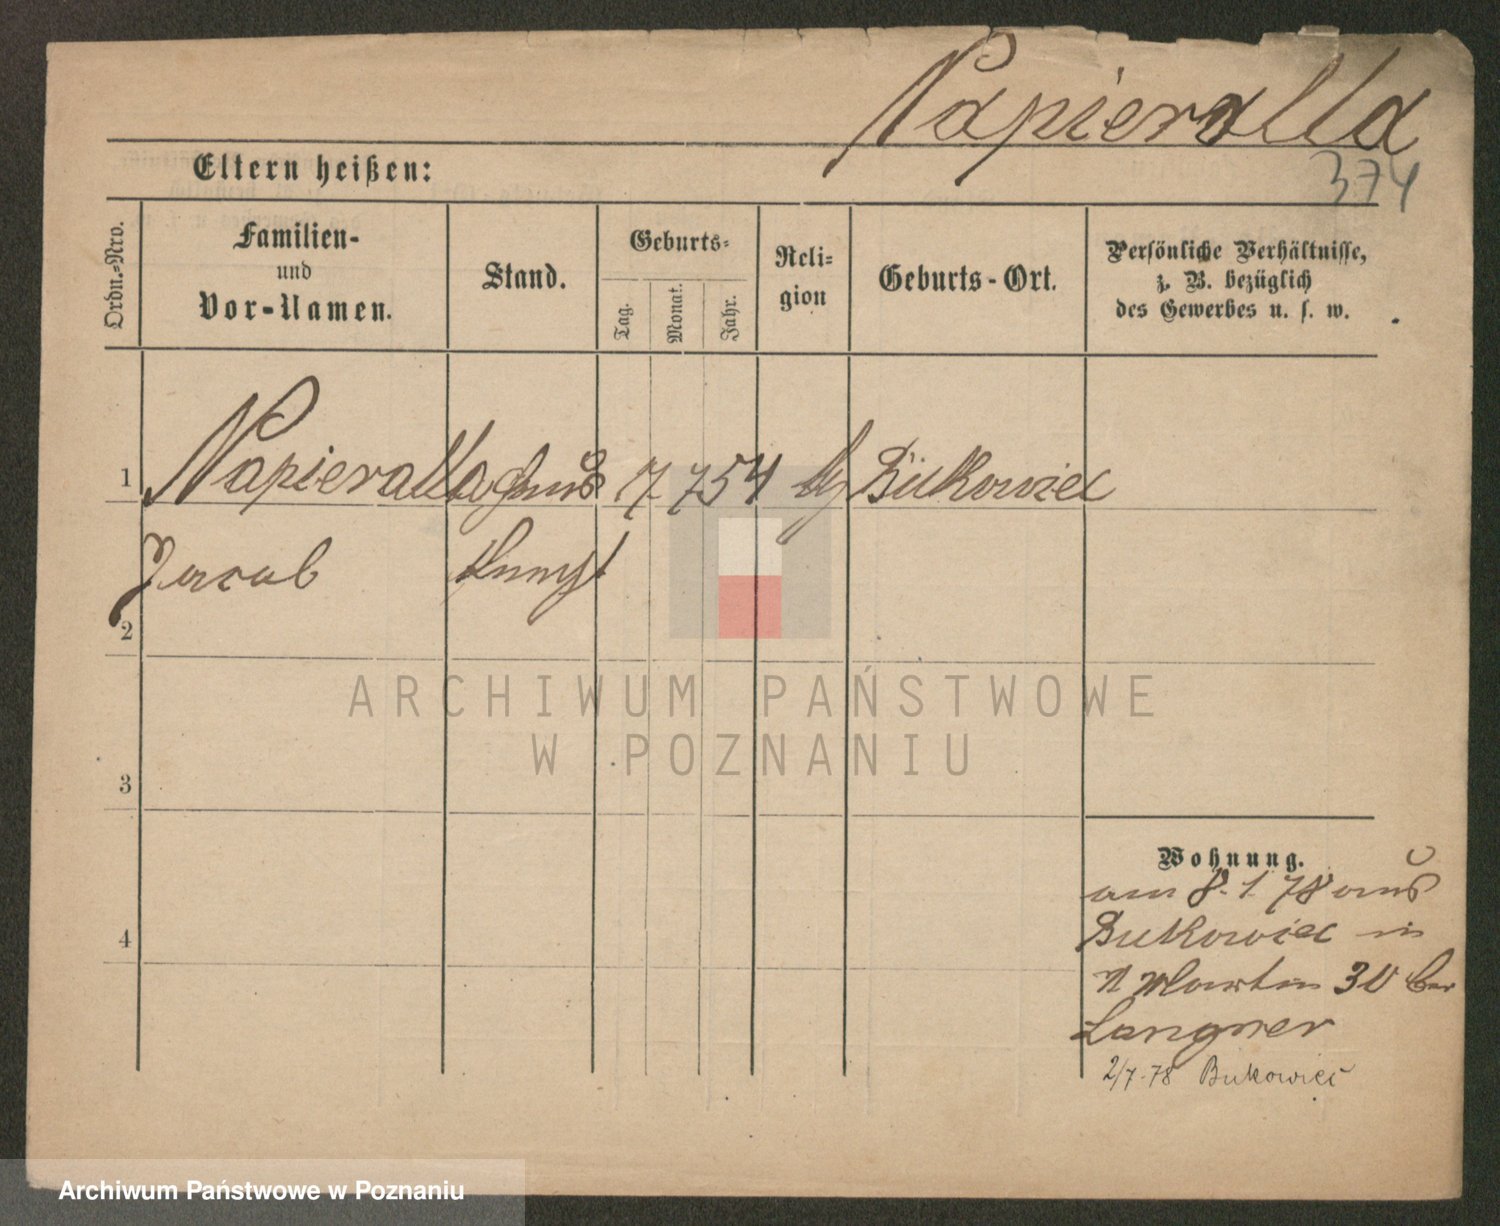 Napieralla
374
Eltern heißen:
Ordn.-Nro.
Familien-
und
Vor-Namen.
Stand.
Geburts-
Tag.
Monat.
Jahr.
Reli-
gion
Geburts-Ort.
Persönliche Verhältnisse,
z. B. bezüglich
des Gewerbes u. s. w.
1 Napieralla Haus 17 7 54 Bukowiec
Jacob
2
3
4
Wohnung.
am 8. 1. 78 aus
Bukowiec in
Martin 30 bei
Langner
2/7.78 Bukowiec
ARCHIWUM PAŃSTWOWE
W POZNANIU
Archiwum Państwowe w Poznaniu